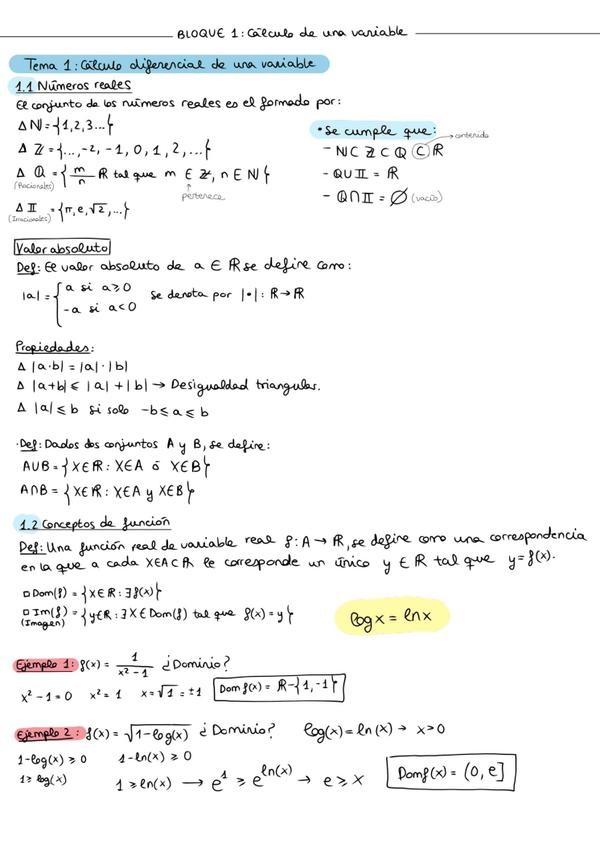 BLOQUE 1: Cálculo de una variable
Tema 1: Cálculo diferencial de una variable
1.1 Números reales
El conjunto de los números reales es el formado por:
Δ ℕ = {1,2,3...}
Δ ℤ = {..., -2, -1, 0, 1, 2, ...}
Δ ℚ = { m/n ℝ tal que m ∈ ℤ, n ∈ ℕ }
(Racionales)
pertenece
Δ 𝕀 = {π, e, √2, ...}
(Irracionales)
• Se cumple que:
- ℕ ⊂ ℤ ⊂ ℚ ⊂ ℝ → contenido
- ℚ ∪ 𝕀 = ℝ
- ℚ ∩ 𝕀 = ∅ (vacío)
Valor absoluto
Def: El valor absoluto de a ∈ ℝ se define como:
|a| = { a si a ≥ 0
-a si a < 0
Se denota por |•|: ℝ → ℝ
Propiedades:
Δ |a·b| = |a|·|b|
Δ |a+b| ≤ |a| + |b| → Desigualdad triangular.
Δ |a| ≤ b si solo -b ≤ a ≤ b
·Def: Dados dos conjuntos A y B, se define:
A∪B = { X∈ℝ : X∈A ó X∈B }
A∩B = { X∈ℝ : X∈A y X∈B }
1.2 Conceptos de función
Def: Una función real de variable real f: A → ℝ, se define como una correspondencia
en la que a cada X∈A⊂ℝ le corresponde un único y ∈ ℝ tal que y = f(x).
▫ Dom(f) = { X∈ℝ : ∃ f(x) }
▫ Im(f) = { y∈ℝ : ∃ X ∈ Dom(f) tal que f(x) = y }
(Imagen)
log x = ln x
Ejemplo 1: f(x) = 1/(x²-1) ¿Dominio?
x² - 1 = 0 x² = 1 x = √1 = ±1 Dom f(x) = ℝ - {1, -1}
Ejemplo 2: f(x) = √(1-log(x)) ¿Dominio? log(x) = ln(x) → x > 0
1-log(x) ≥ 0 1-ln(x) ≥ 0
1 ≥ log(x) 1 ≥ ln(x) → e¹ ≥ e^ln(x) → e ≥ x Dom f(x) = (0, e]